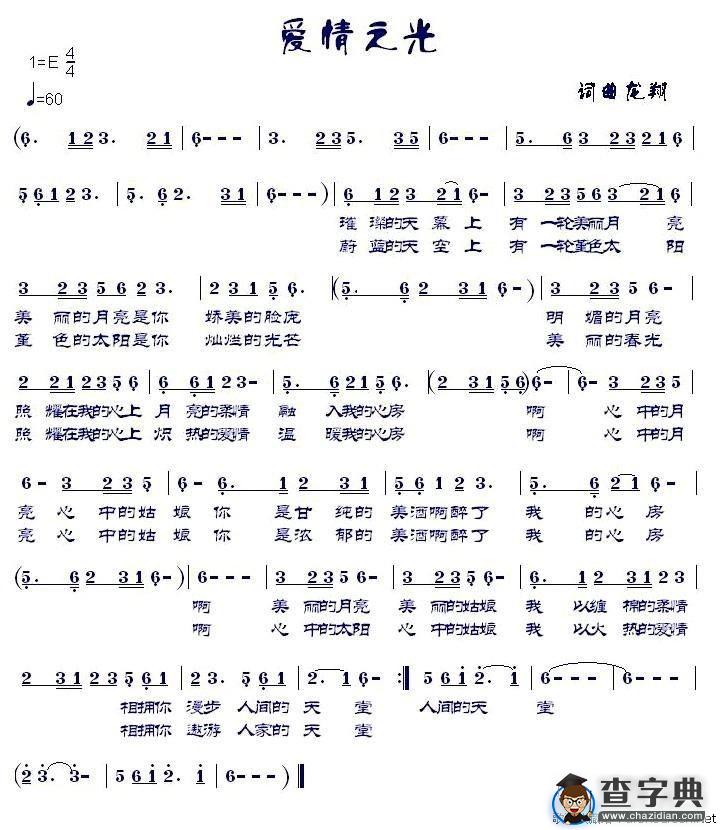 爱情之光
1=E 4/4
♩=60
词曲龙翔
(6. 123. 21 | 6--- | 3. 235. 35 | 2--- | 5. 63 23216 |
56123. | 5. 62. 31 | 6---) | 6 123 216- | 3 23563 216 |
璀 璨的天幕上 有 一轮美丽月 亮
蔚 蓝的天空上 有 一轮堇色太 阳
3 235623. | 23156. | (5. 62 316-) | 3 2356- |
美 丽的月亮是你 娇美的脸庞 明 媚的月亮
堇 色的太阳是你 灿烂的光芒 美 丽的春光
2 212356 | 6. 6123- | 5. 6215. | (23 3156) 6- | 6-. 123 |
照 耀在我的心上 月 亮的柔情 融 入我的心房 啊 心中的月
照 耀在我的心上 炽 热的爱情 温 暖我的心房 啊 心中的月
6- 3 235 | 3- 56. | 6. 12 231 | 3. 12323. | 5. 6216- |
亮 心 中的姑 娘你 是甘 纯的 美酒啊醉了 我 的 心 房
亮 心 中的姑 娘你 是浓 郁的 美酒啊醉了 我 的 心 房
(5. 62 316-) | 6--- | 3 2356- | 3 2356- | 6. 12 3123 |
啊 美 丽的月亮 美 丽的姑娘 我 以缠 棉的柔情
啊 心 中的太阳 心 中的姑娘 我 以火 热的爱情
2 31123561 | 2. 3. | 5. 61 | 2. 1 6- :‖ 5612. i | 6--- | 6--- |
相拥你 漫步 人间的 天 堂 人间的天 堂
相拥你 遨游 人家的 天 堂
(2 3. 3- | 5612. 2 | 6---) ‖
查字典
www.chazidian.com